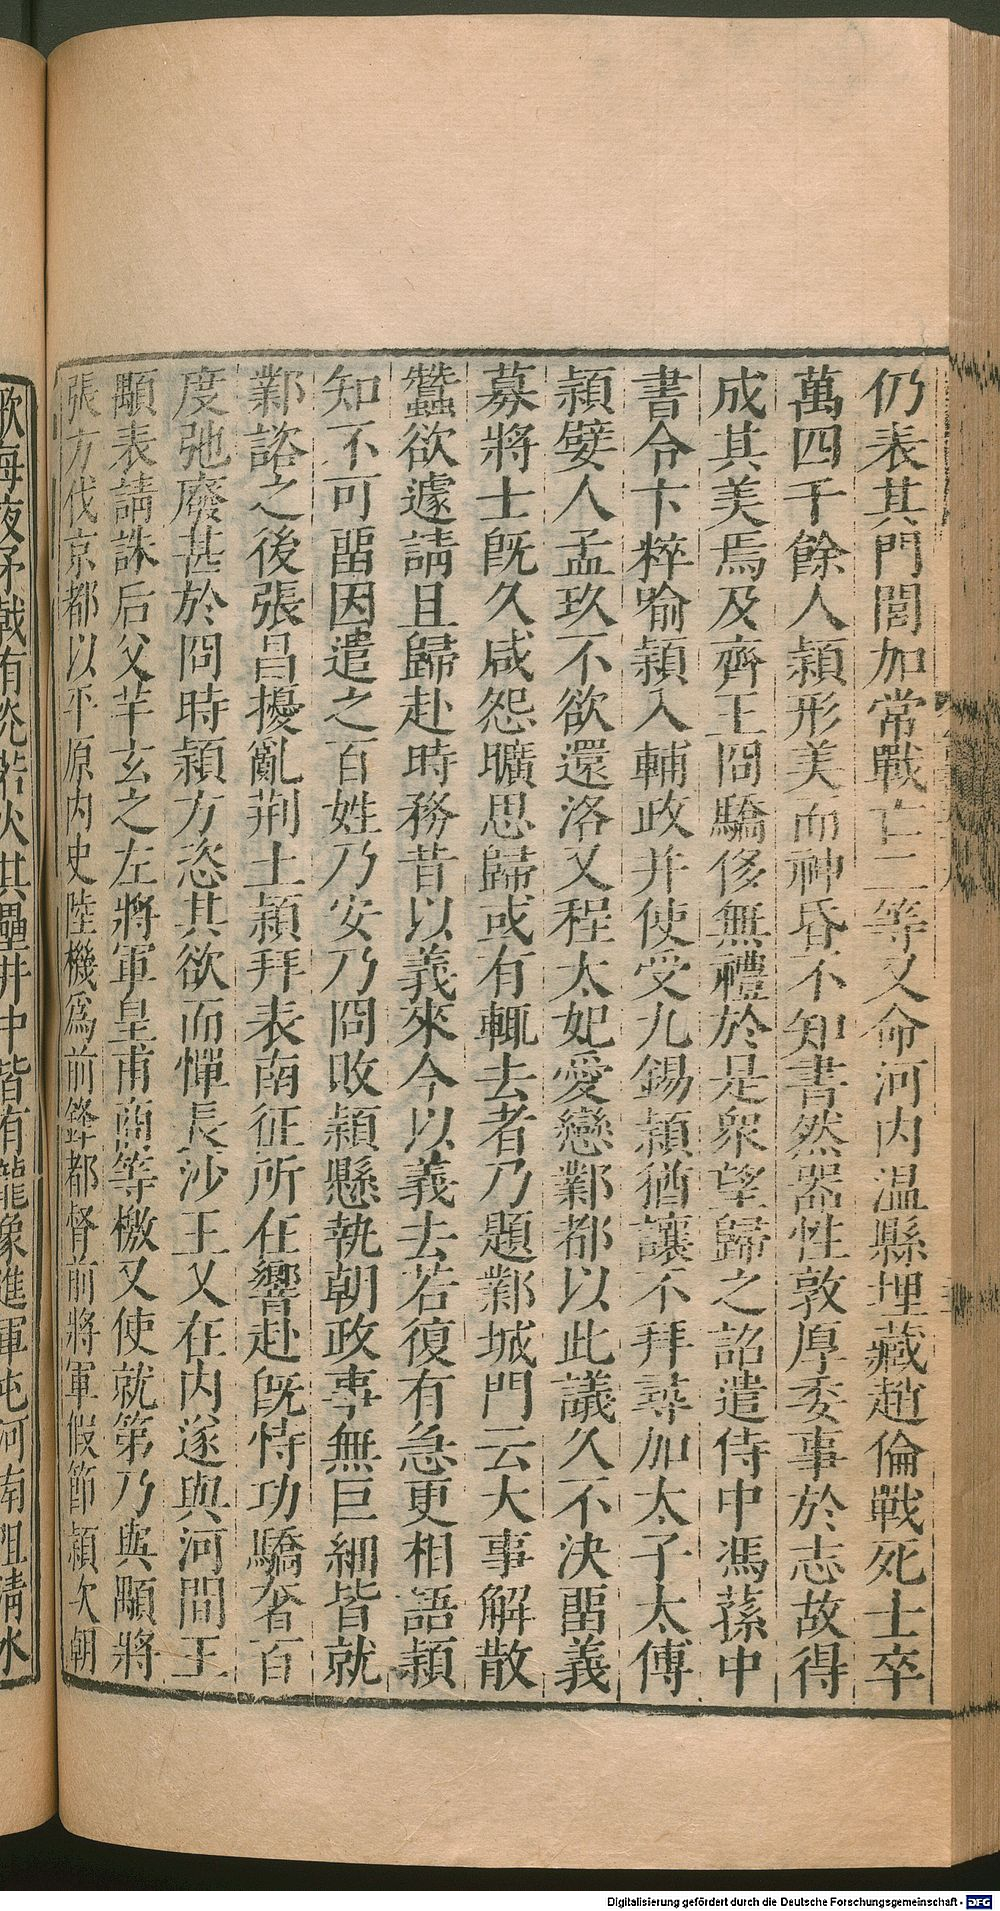 仍表其門閭加常戰亡二等又命河内温縣埋藏趙倫戰死士卒
萬四千餘人頴形美而神昏不知書然器性敦厚委事於志故得
成其美焉及齊王冏驕侈無禮於是衆望歸之詔遣侍中馮蓀中
書令卞粹喻頴入輔政并使受九錫頴猶讓不拜尋加太子太傅
頴嬖人孟玖不欲還洛又程太妃愛戀鄴都以此議久不決畱義
募將士旣久咸怨曠思歸或有輒去者乃題鄴城門云大事解散
蠶欲遽請且歸赴時務昔以義來今以義去若復有急更相語頴
知不可畱因遣之百姓乃安乃冏敗頴懸執朝政事無巨細皆就
鄴諮之後張昌擾亂荆土頴拜表南征所在響赴旣恃功驕奢百
度弛廢甚於冏時頴方恣其欲而憚長沙王乂在内遂與河間王
顒表請誅后父羊玄之左將軍皇甫商等檄乂使就第乃與顒將
張方伐京都以平原内史陸機爲前鋒都督前將軍假節頴次朝
歌每夜矛戟有光若火其壘井中皆有龍象進軍屯河南阻淸水
Digitalisierung gefördert durch die Deutsche Forschungsgemeinschaft - DFG